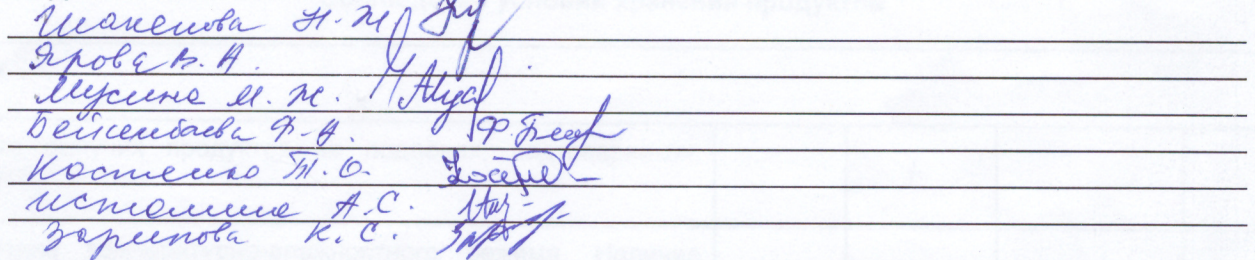 Шакенова Н. Ж.
Ярова В. А.
Мусина М. Ж.
Бейсенбаева Ф. А.
Костенко Т. О.
Истомина А. С.
Зарипова К. С.